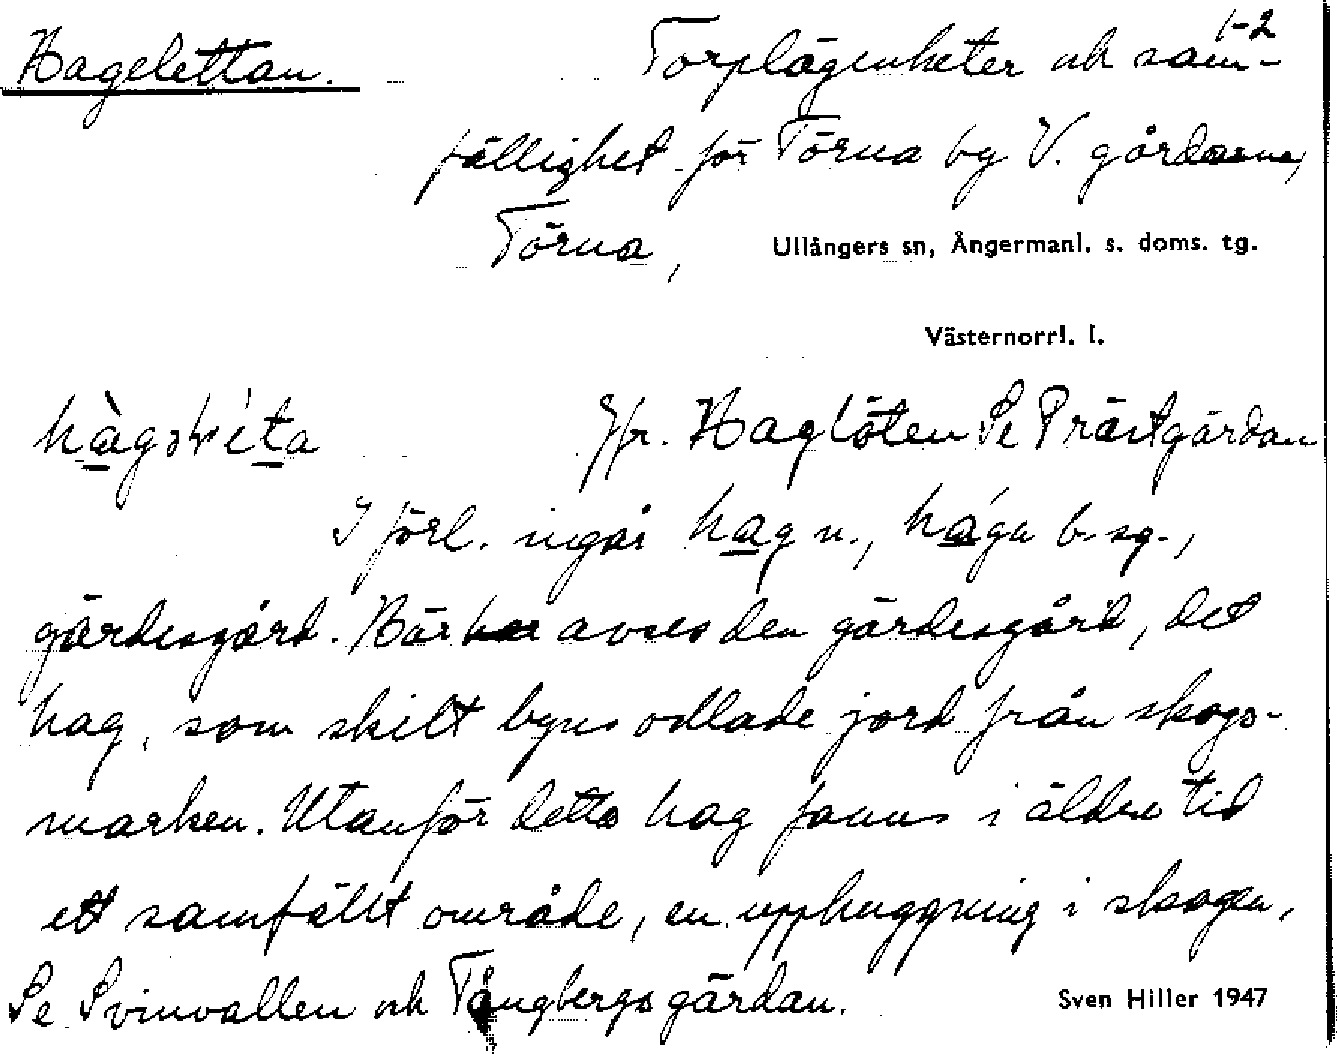 1-2
Hagelettan. Torplägenheter och sam-
fällighet för Törna by V. gårdarna,
Törna, Ullångers sn, Ångermanl. s. doms. tg.
Västernorrl. l.
Jfr. Haglöten Se Prästgärdan
I förl. ingår hag n., hága b. sg.,
gärdesgård. Här avses den gärdesgård, det
hag, som skilt byns odlade jord från skogs-
marken. Utanför detta hag fanns i äldre tid
ett samfällt område, en upphuggning i skogen,
Se Svinvallen och Tångbergsgärdan. Sven Hiller 1947